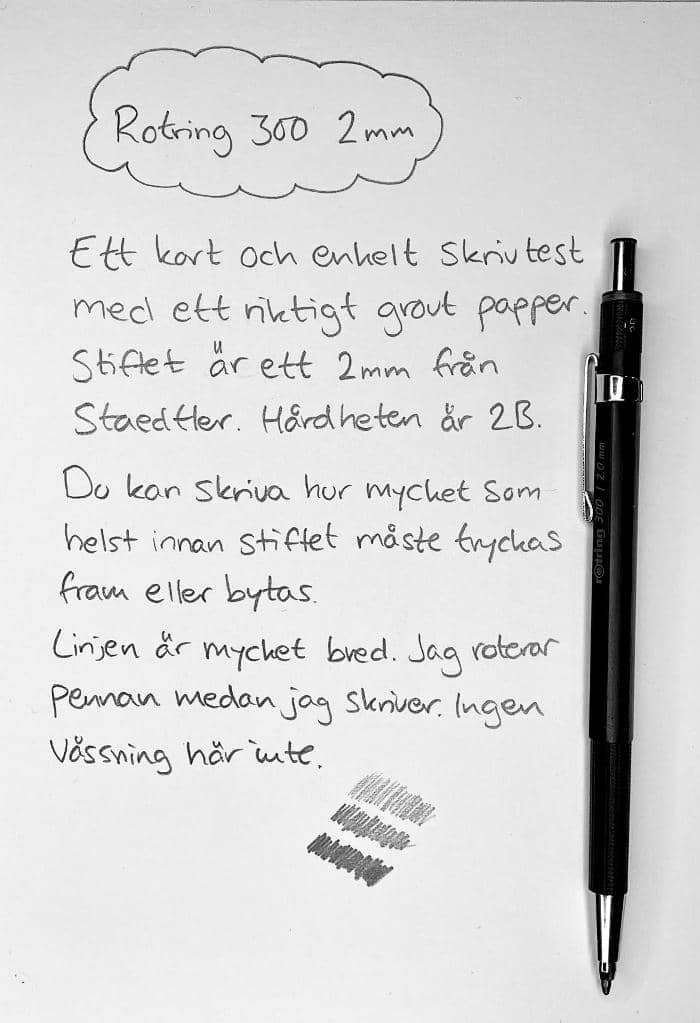 Rotring 300 2mm
Ett kort och enkelt skrivtest
med ett riktigt grovt papper.
Stiftet är ett 2mm från
Staedtler. Hårdheten är 2B.
Du kan skriva hur mycket som
helst innan stiftet måste tryckas
fram eller bytas.
Linjen är mycket bred. Jag roterar
pennan medan jag skriver. Ingen
Vässning här inte.
rotring 300 | 2.0 mm